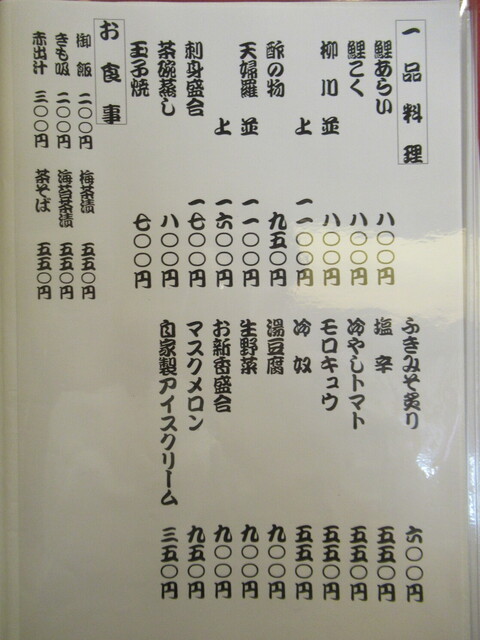 一品料理
鯉あらい 八〇〇円
鯉こく 八〇〇円
柳川 並 八〇〇円
上 一一〇〇円
酢の物 九五〇円
天婦羅 並 一一〇〇円
上 一六〇〇円
刺身盛合 一七〇〇円
茶碗蒸し 八〇〇円
玉子焼 七〇〇円
ふきみそ炙り 六〇〇円
塩辛 五五〇円
冷やしトマト 五五〇円
モロキュウ 五五〇円
冷奴 五五〇円
湯豆腐 九〇〇円
生野菜 九〇〇円
お新香盛合 九〇〇円
マスクメロン 九五〇円
自家製アイスクリーム 三五〇円
お食事
御飯 二〇〇円 梅茶漬 五五〇円
きも吸 二〇〇円 海苔茶漬 五五〇円
赤出汁 三〇〇円 茶そば 五五〇円